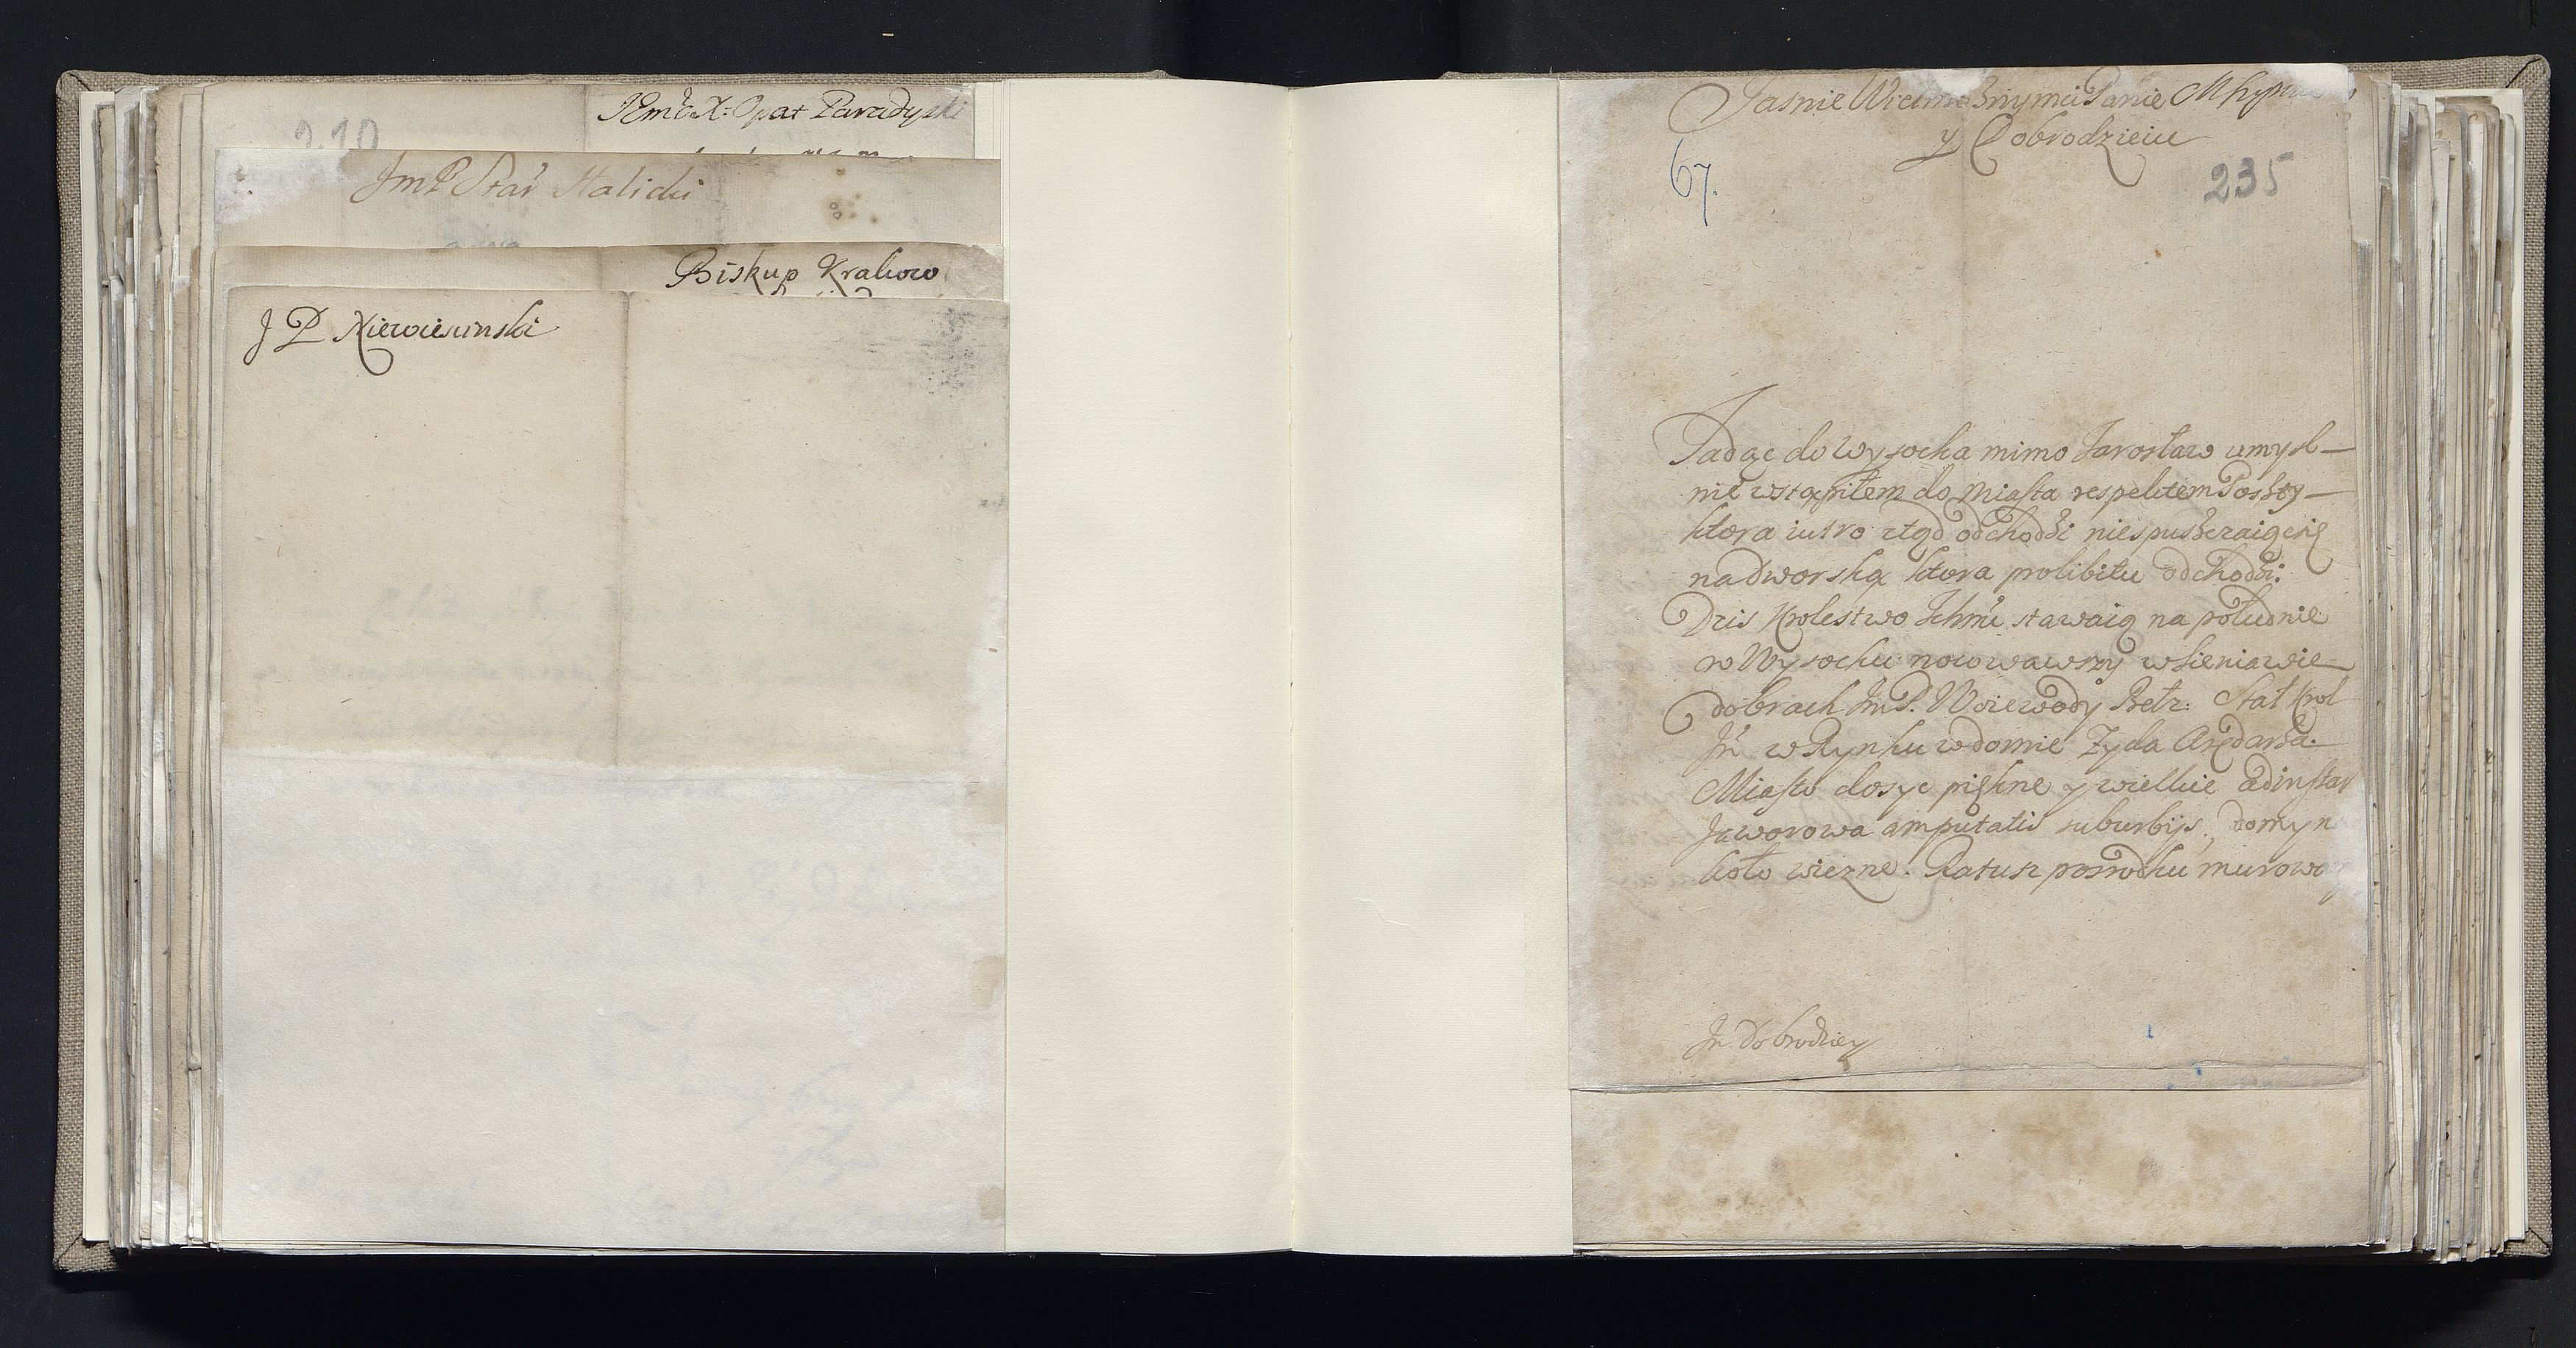 210
JEmć X: Opat Paradyski
JmP Star Halicki
Biskup Krakow
J P Niewiescinski
Jasnie Wielmo Mnie Panie
y Dobrodzieiu
67.
235
Jadąc do Wysocka mimo Jarosław umysl-
nie wstąpiłem do Miasta respektem Poszty-
ktora iutro ztąd odchodzi niespuszczaiąc się
na dworską ktora prolibitu odchodzi.
Dzis Krolestwo Ichmć stawaią na południe
w Wysocku nocowawszy w Sieniawie
dobrach JmP. Woiewody Bełz: Stał Krol
Jm w Rynku w domie Zyda Arędarza.
Miasto dosyc piękne y wielkie ad instar
Jaworowa amputatis suburbijs, domy n
koło wiezne. Ratusz posrodku murowa
Jm Dobrodziey